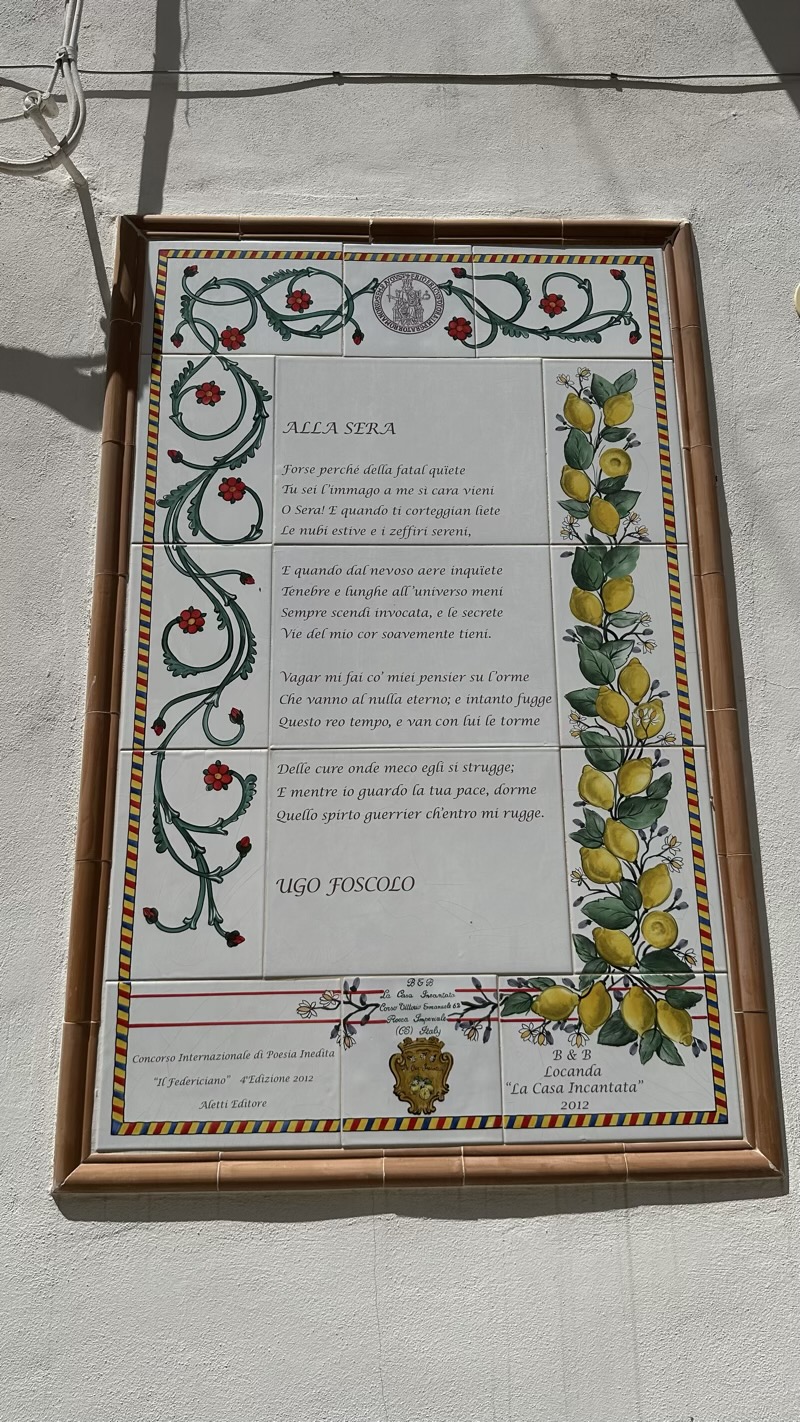 ALLA SERA
Forse perché della fatal quïete
Tu sei l'immago a me si cara vieni
O Sera! E quando ti corteggian liete
Le nubi estive e i zeffiri sereni,
E quando dal nevoso aere inquïete
Tenebre e lunghe all'universo meni
Sempre scendi invocata, e le secrete
Vie del mio cor soavemente tieni.
Vagar mi fai co' miei pensier su l'orme
Che vanno al nulla eterno; e intanto fugge
Questo reo tempo, e van con lui le torme
Delle cure onde meco egli si strugge;
E mentre io guardo la tua pace, dorme
Quello spirto guerrier ch'entro mi rugge.
UGO FOSCOLO
Concorso Internazionale di Poesia Inedita
"Il Federiciano" 4°Edizione 2012
Aletti Editore
B & B
La Casa Incantata
Corso Vittorio Emanuele 62
Rocca Imperiale
(CS) Italy
B & B
Locanda
"La Casa Incantata"
2012